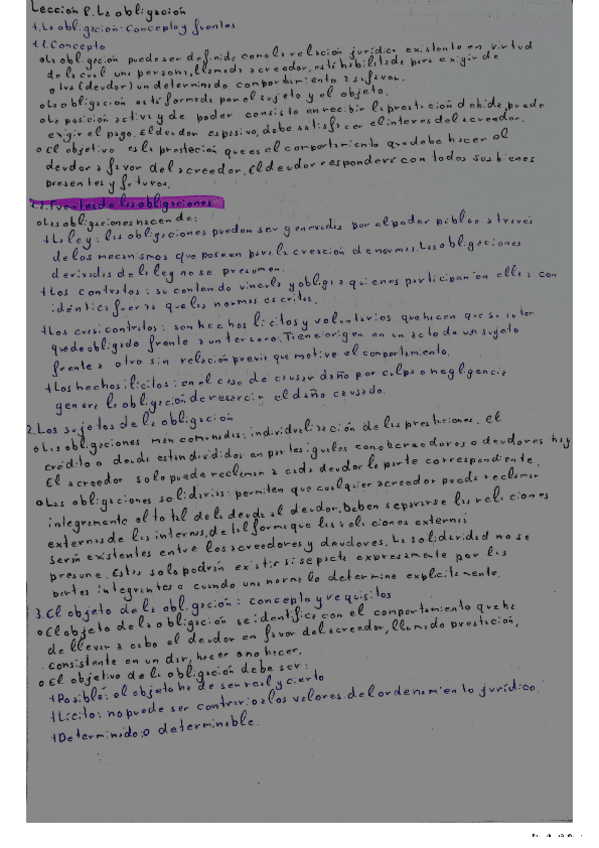 Lección 8. La obligación
1. La obligación: Concepto y fuentes
1.1. Concepto
La obligación puede ser definida como la relación jurídica existente en virtud
de la cual una persona, llamada acreedor, está habilitada para exigir de
otra (deudor) un determinado comportamiento a su favor.
La obligación está formada por el sujeto y el objeto.
La posición activa y de poder consiste en recibir la prestación debida, puede
exigir el pago. El deudor es pasivo, debe satisfacer el interés del acreedor.
El objetivo es la prestación que es el comportamiento que debe hacer el
deudor a favor del acreedor. El deudor responderá con todos sus bienes
presentes y futuros.
1.2. Fuentes de las obligaciones
Las obligaciones nacen de:
+ La ley: las obligaciones pueden ser generadas por el poder público a través
de los mecanismos que poseen para la creación de normas. Las obligaciones
derivadas de la ley no se presumen.
+ Los contratos: su contenido vincula y obliga a quienes participan en ellas con
idéntica fuerza que las normas escritas.
+ Los cuasi contratos: son hechos lícitos y voluntarios que hacen que su autor
quede obligado frente a un tercero. Tiene origen en un acto de un sujeto
frente a otro sin relación previa que motive el comportamiento.
+ Los hechos ilícitos: en el caso de causar daño por culpa o negligencia
genera la obligación de resarcir el daño causado.
2. Los sujetos de la obligación
Las obligaciones mancomunadas: individualización de las prestaciones. El
crédito o deuda están divididos en partes iguales como acreedores o deudores hay
El acreedor solo puede reclamar a cada deudor la parte correspondiente.
Las obligaciones solidarias: permiten que cualquier acreedor pueda reclamar
íntegramente el total de la deuda al deudor. Deben separarse las relaciones
externas de las internas, de tal forma que las relaciones externas
serán existentes entre los acreedores y deudores. La solidaridad no se
presume. Estas solo podrán existir si se pacta expresamente por las
partes integrantes o cuando una norma lo determine explícitamente.
3. El objeto de la obligación: concepto y requisitos
El objeto de la obligación se identifica con el comportamiento que ha
de llevar a cabo el deudor en favor del acreedor, llamado prestación,
consistente en un dar, hacer o no hacer.
El objetivo de la obligación debe ser:
+ Posible: el objeto ha de ser real y cierto
+ Lícito: no puede ser contrario a los valores del ordenamiento jurídico.
+ Determinado o determinable.